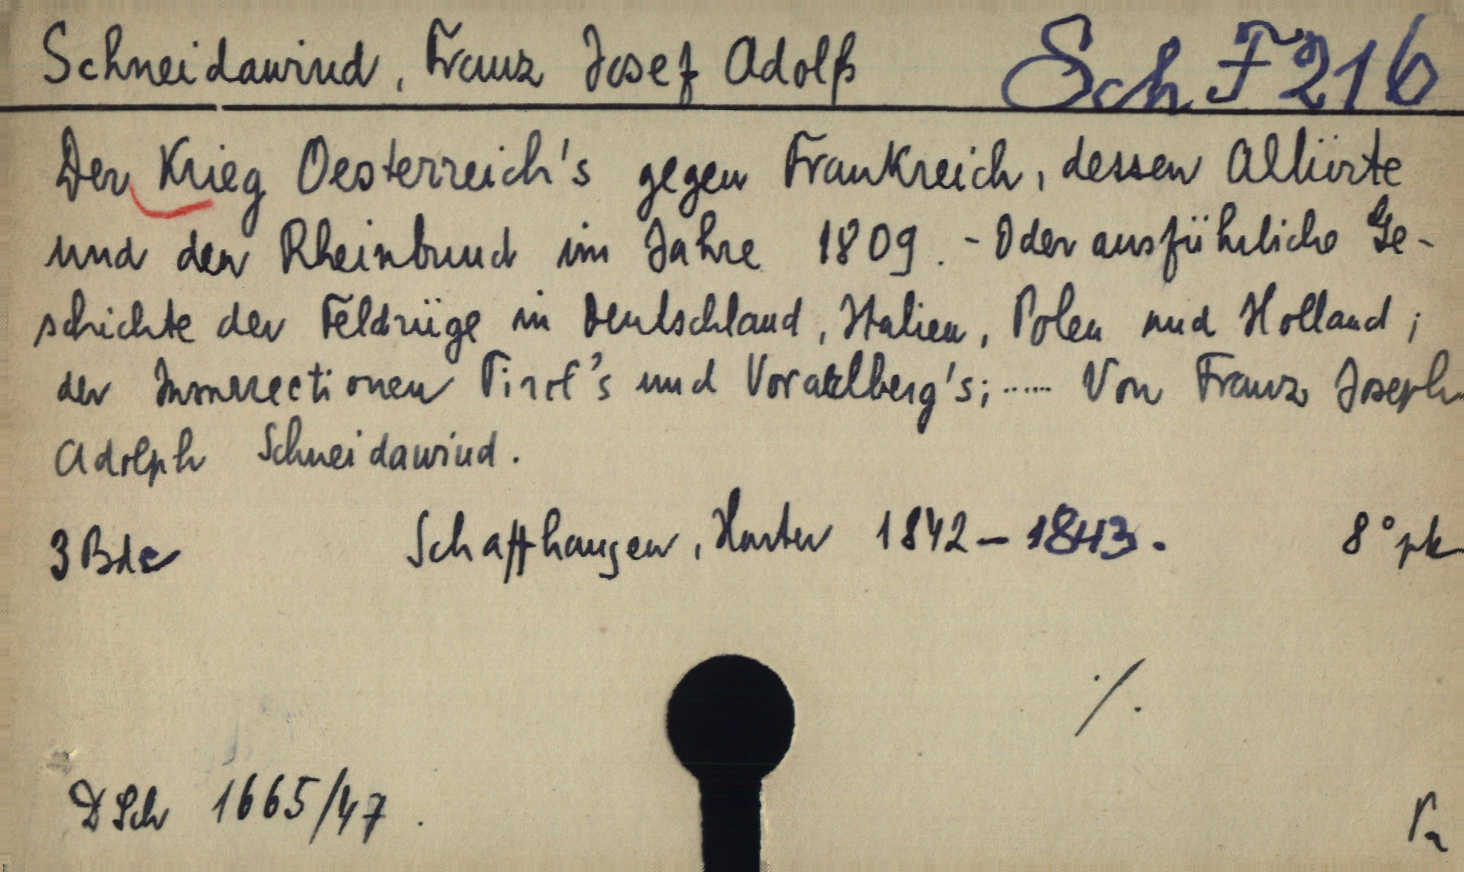 Schneidawind, Franz Josef Adolf Sch F 216
Der Krieg Oesterreich's gegen Frankreich, dessen Alliirte
und den Rheinbund im Jahre 1809. - Oder ausführliche Ge-
schichte der Feldzüge in Deutschland, Italien, Polen und Holland;
der Insurrectionen Tirol's und Vorarlberg's; ..... Von Franz Joseph
Adolph Schneidawind.
3 Bde Schaffhausen, Hurter 1842 - 1843. 8°
./.
D Sch 1665/47.